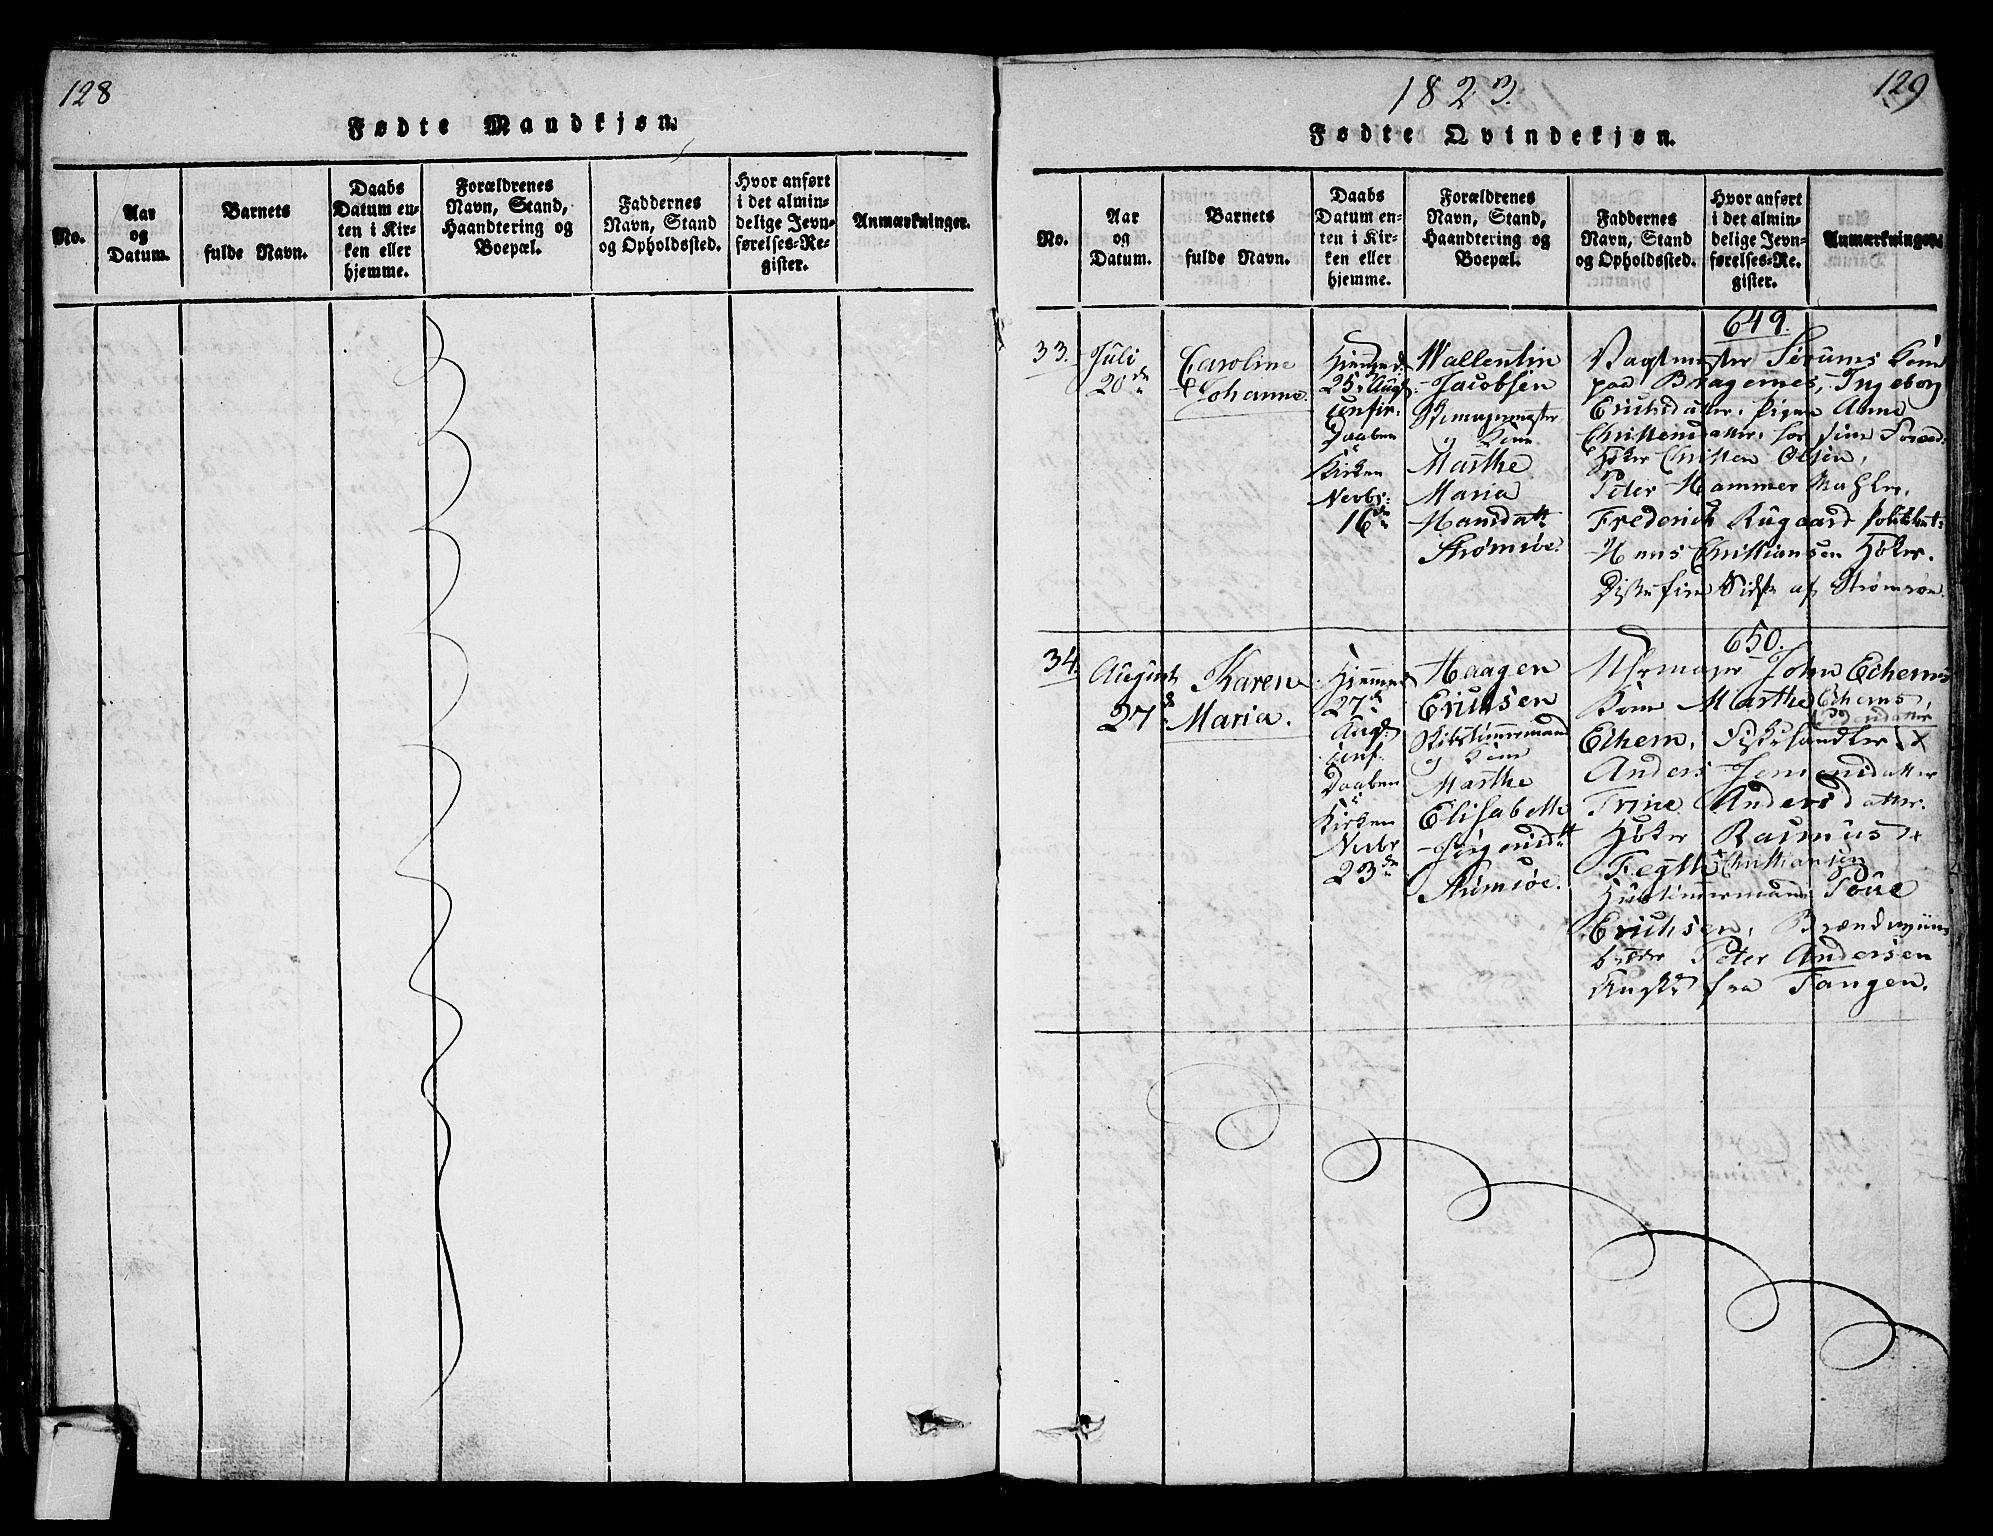 128
Fødte Mandkjøn.
No.
Aar
og
Datum.
Barnets
fulde Navn.
Daabs
Datum en-
ten i Kir-
ken eller
hjemme.
Forældrenes
Navn, Stand,
Haandtering og
Boepæl.
Faddernes
Navn, Stand
og Opholdssted.
Hvor anført
i det almin-
delige Jevn-
førelses-Re-
gister.
Anmærkninger.
1823.
129
Fødte Qvindekjøn.
No.
Aar
og
Datum.
Barnets
fulde Navn.
Daabs
Datum en-
ten i Kir-
ken eller
hjemme.
Forældrenes
Navn, Stand,
Haandtering og
Boepæl.
Faddernes
Navn, Stand
og Opholdssted.
Hvor anført
i det almin-
delige Jevn-
førelses-Re-
gister.
Anmærkninger.
33.
Juli
20de
Caroline
Johanne.
25 Augs
Daaben
i
Kirken
Novbr.
16de
Wallentin
Jacobsen
og Kone
Marthe
Maria
Hansdatt
Strømsøe.
649.
Vagtmester Kone
paa Bragernes, Ingeborg
Erichsdatter, Pigen Anne
Christensdatter,
Høker Christen Olsen,
Peter Hammer
Frederich Rugaard
Hans Christiansen Høker.
Sidste af Strømsøe.
34.
August
27de
Karen
Maria.
Hjemme
27de
Augs
conf.
Daaben
i
Kirken
Novbr
23de
Haagen
Erichsen
Skibstimmermand
og Kone
Marthe
Elisabeth
Jørgensdtt
Strømsøe.
650.
Uhrmager John Echems
Kone Marthe Echems,
Echem,
Anders Jensensdatter
Trine Andersdatter.
Høker Rasmus
Christiansen
Huustimmermand
Erichsen, Brændeviins
Peter Andersen
fra Tangen.